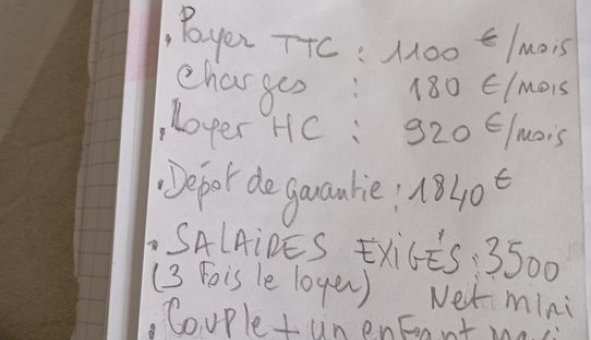 . Payer TTC : 1100 €/mois
Charges : 180 €/mois
. Loyer HC : 920 €/mois
. Dépôt de garantie : 1840 €
. SALAIRES EXIGÉS : 3500
(3 Fois le loyer) Net mini
. Couple + un enfant maxi